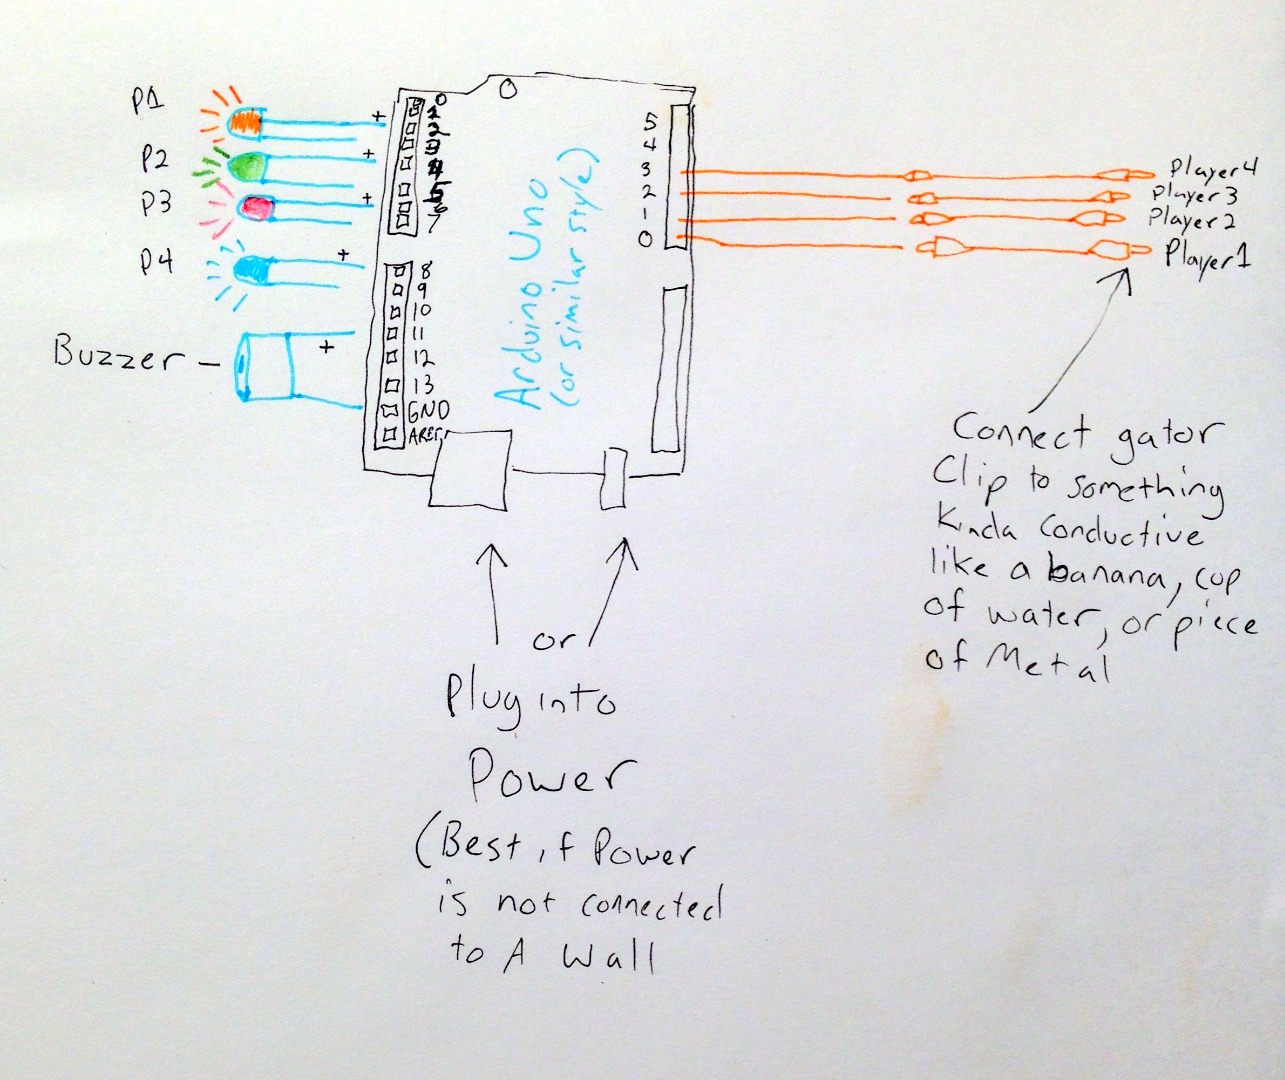 P1
P2
P3
P4
Buzzer -
+
+
+
+
+
0
1
2
3
4
5
6
7
8
9
10
11
12
13
GND
AREF
Arduino Uno
(or similar style)
5
4
3
2
1
0
Player 4
Player 3
Player 2
Player 1
Connect gator
Clip to something
Kinda Conductive
like a banana, cup
of water, or piece
of Metal
or
Plug into
Power
(Best if Power
is not connected
to A Wall